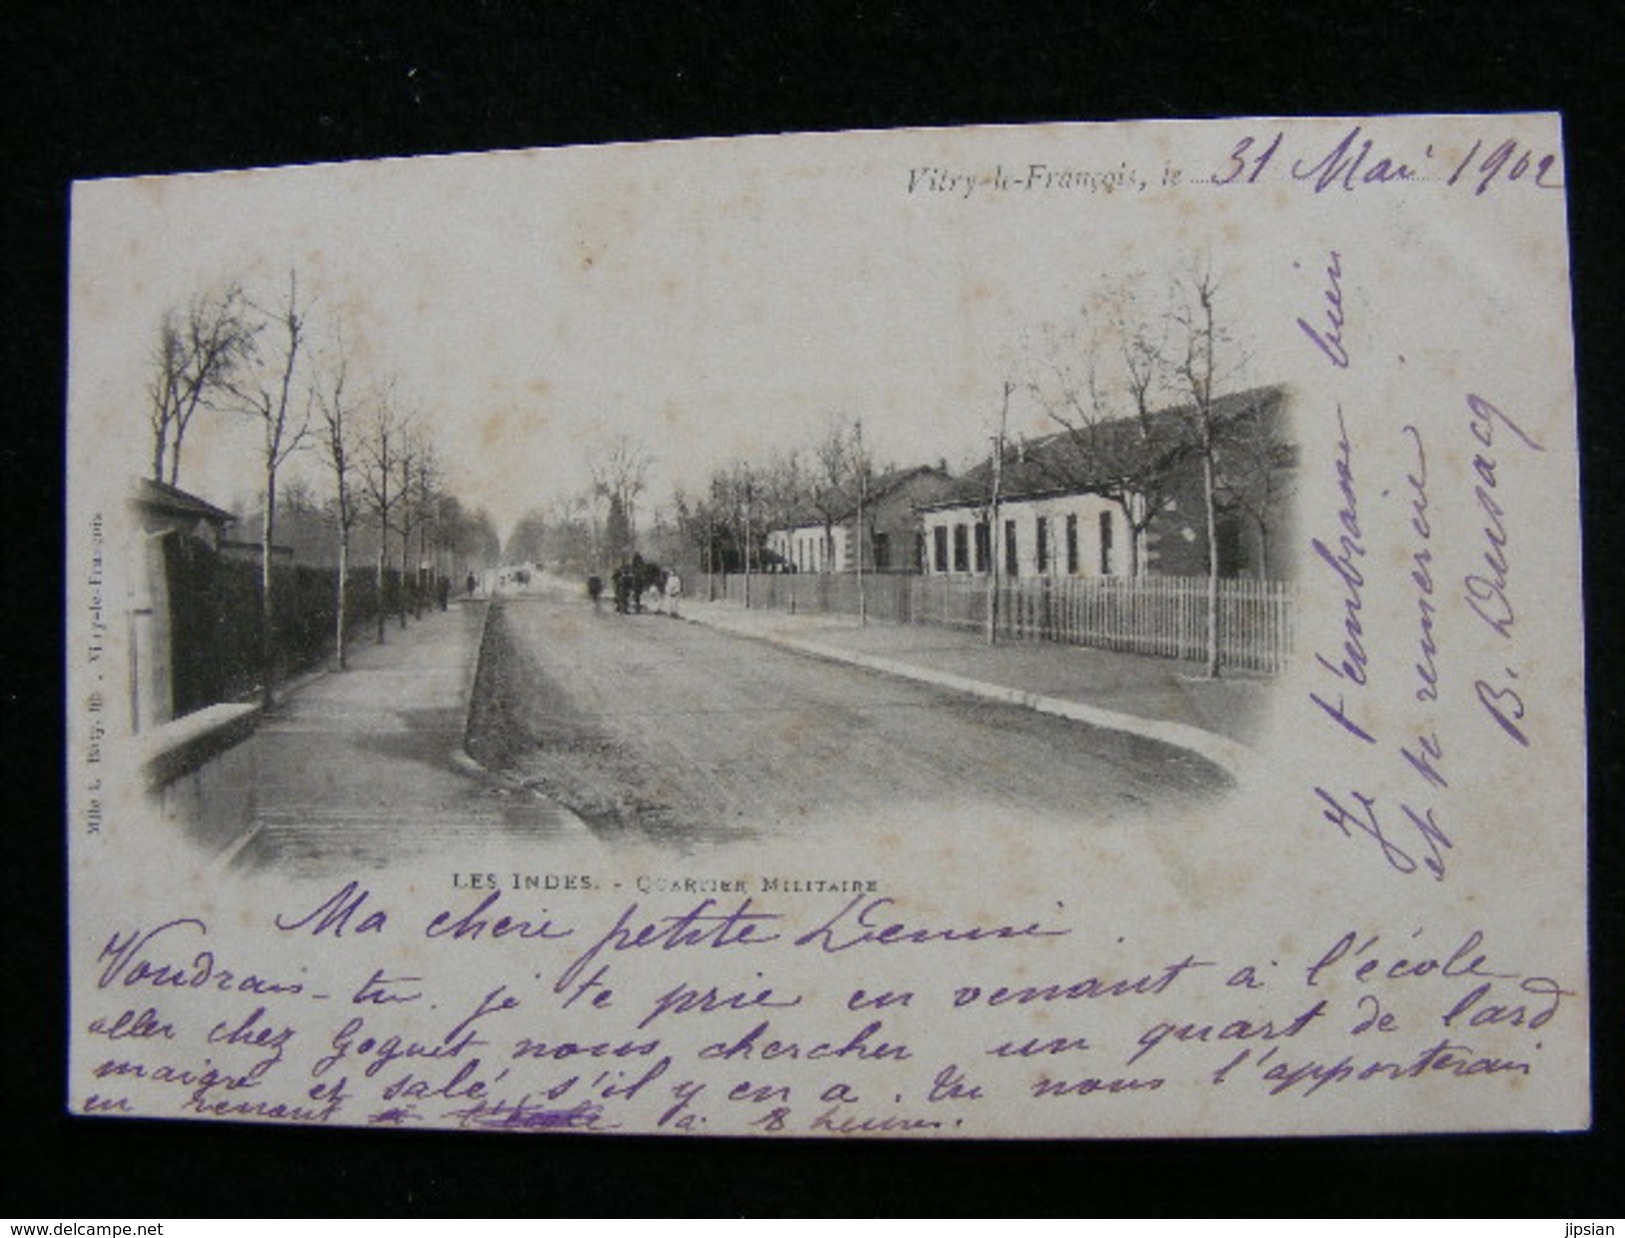 Vitry-le-François, le 31 Mai 1902
Mlle L. lib - Vitry-le-François
LES INDES. - QUARTIER MILITAIRE
Ma chere petite
Voudrais-tu je te prie en venant à l'école
aller chez Goguet nous chercher un quart de lard
maigre et salé s'il y en a. tu nous l'apporterais
en venant à 8 heures.
Je t'embrasse bien
et te remercie
www.delcampe.net
jipsian